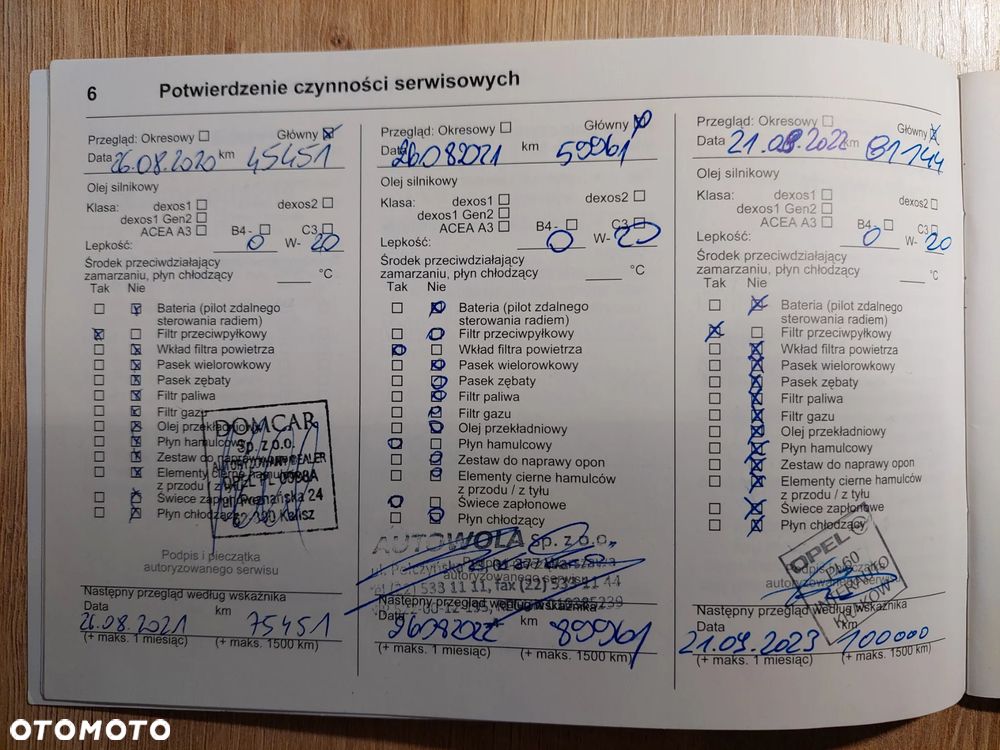 6 Potwierdzenie czynności serwisowych
Przegląd: Okresowy ☐ Główny ☒
Data 26.08.2020 km 45451
Olej silnikowy
Klasa: dexos1 ☐ dexos2 ☐
dexos1 Gen2 ☐
ACEA A3 ☐ B4 - ☐ C3 ☐
Lepkość: 0 W- 20
Środek przeciwdziałający
zamarzaniu, płyn chłodzący °C
Tak Nie
☐ ☒ Bateria (pilot zdalnego
sterowania radiem)
☒ ☐ Filtr przeciwpyłkowy
☐ ☒ Wkład filtra powietrza
☐ ☒ Pasek wielorowkowy
☐ ☒ Pasek zębaty
☐ ☒ Filtr paliwa
☐ ☒ Filtr gazu
☐ ☒ Olej przekładniowy
☐ ☒ Płyn hamulcowy
☐ ☒ Zestaw do naprawy
☐ ☒ Elementy cierne hamulców
z przodu / z tyłu
☐ ☒ Świece zapłonowe
☐ ☒ Płyn chłodzący
DOMCAR
Sp. z o.o.
24
Kalisz
Podpis i pieczątka
autoryzowanego serwisu
Następny przegląd według wskaźnika
Data km
26.08.2021 75451
(+ maks. 1 miesiąc) (+ maks. 1500 km)
Przegląd: Okresowy ☐ Główny ☒
Data 26082021 km 59961
Olej silnikowy
Klasa: dexos1 ☐ dexos2 ☐
dexos1 Gen2 ☐
ACEA A3 ☐ B4 - ☐ C3 ☐
Lepkość: 0 W- 20
Środek przeciwdziałający
zamarzaniu, płyn chłodzący °C
Tak Nie
Bateria (pilot zdalnego
sterowania radiem)
Filtr przeciwpyłkowy
Wkład filtra powietrza
Pasek wielorowkowy
Pasek zębaty
Filtr paliwa
Filtr gazu
Olej przekładniowy
Płyn hamulcowy
Zestaw do naprawy opon
Elementy cierne hamulców
z przodu / z tyłu
Świece zapłonowe
Płyn chłodzący
AUTOWOLA Sp. z o.o.
533 11 11, fax (22) 533 11 44
autoryzowanego serwisu
Następny przegląd według wskaźnika
Data 26082022 km 89961
(+ maks. 1 miesiąc) (+ maks. 1500 km)
Przegląd: Okresowy ☐ Główny ☒
Data 21.09.2022 km 81144
Olej silnikowy
Klasa: dexos1 ☐ dexos2 ☐
dexos1 Gen2 ☐
ACEA A3 ☐ B4 - ☐ C3 ☐
Lepkość: 0 W- 20
Środek przeciwdziałający
zamarzaniu, płyn chłodzący °C
Tak Nie
☐ ☒ Bateria (pilot zdalnego
sterowania radiem)
☒ ☐ Filtr przeciwpyłkowy
☐ ☒ Wkład filtra powietrza
☐ ☒ Pasek wielorowkowy
☐ ☒ Pasek zębaty
☐ ☒ Filtr paliwa
☐ ☒ Filtr gazu
☐ ☒ Olej przekładniowy
☐ ☒ Płyn hamulcowy
☐ ☒ Zestaw do naprawy opon
☐ ☒ Elementy cierne hamulców
z przodu / z tyłu
☐ ☒ Świece zapłonowe
☐ ☒ Płyn chłodzący
OPEL
KRAKÓW
autoryzowanego serwisu
Następny przegląd według wskaźnika
Data km
21.09.2023 100000
(+ maks. 1 miesiąc) (+ maks. 1500 km)
OTOMOTO